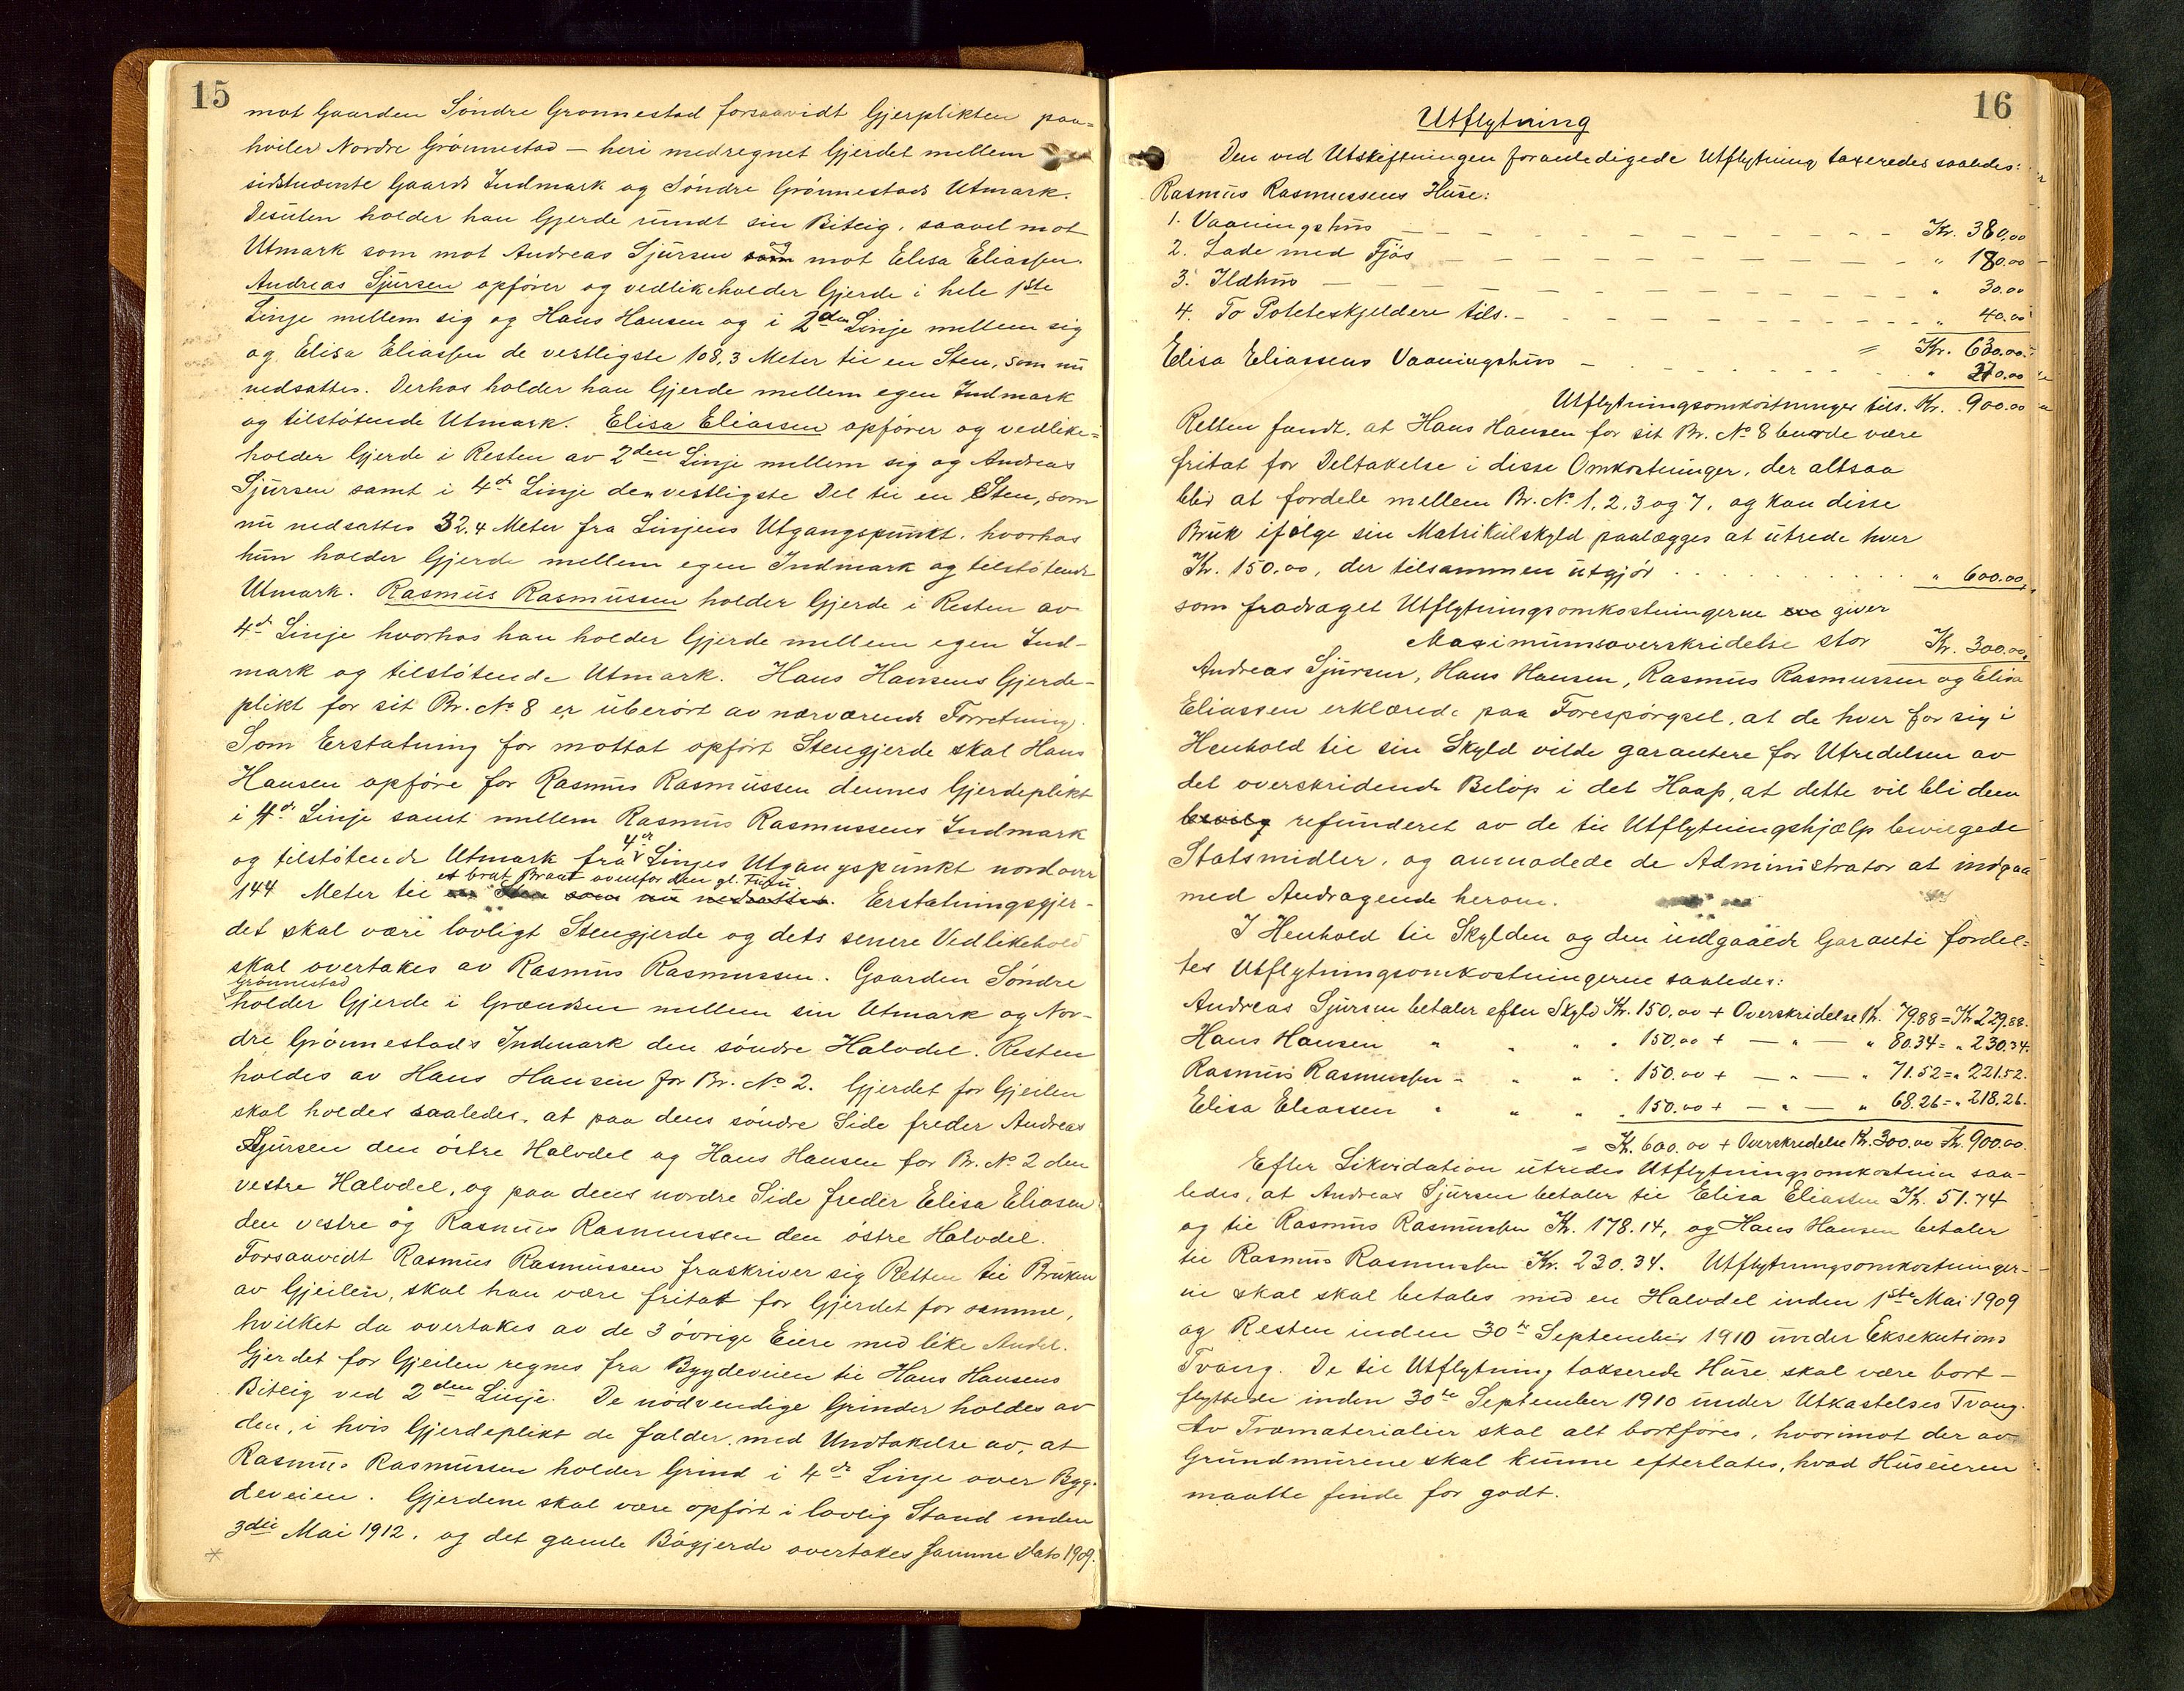 15
mot Gaarden Söndre Grönnestad forsaavidt Gjerplikten paa=
hviler Nordre Grönnestad — heri medregnet Gjerdet mellem
sidstnævnte Gaards Indmark og Söndre Grönnestads Utmark.
Desuten holder han Gjerde rundt sin Biteig, saavel mot
Utmark som mot Andreas Sjursen som og mot Elisa Eliassen.
Andreas Sjursen opförer og vedlikeholder Gjerde i hele 1ste
Linje mellem sig og Hans Hansen og i 2den Linje mellem sig
og Elisa Eliassen de vestligste 108,3 Meter til en Sten, som nu
nedsattes. Derhos holder han Gjerde mellem egen Indmark
og tilstötende Utmark. Elisa Eliassen opförer og vedlike=
holder Gjerde i Resten av 2den Linje mellem sig og Andreas
Sjursen samt i 4de Linje den vestligste Del til en Sten, som
nu nedsattes 32.4 Meter fra Linjens Utgangspunkt, hvorhos
hun holder Gjerde mellem egen Indmark og tilstötende
Utmark. Rasmus Rasmussen holder Gjerde i Resten av
4de Linje hvorhos han holder Gjerde mellem egen Ind-
mark og tilstötende Utmark. Hans Hansens Gjerde-
plikt for sit Br. No 8 er uberört av nærværende Forretning.
Som Erstatning for mottat opfört Stengjerde skal Hans
Hansen opföre for Rasmus Rasmussen dennes Gjerdeplikt
i 4de Linje samt mellem Rasmus Rasmussens Indmark
og tilstötende Utmark fra 4de Linjes Utgangspunkt nordover
144 Meter til en Sten som nu nedsattes. et brat Brant ovenfor den gl. Tuft. Erstatningsgjer-
det skal være lovligt Stengjerde og dets senere Vedlikehold
skal overtakes av Rasmus Rasmussen. Gaarden Söndre
Grönnestad
holder Gjerde i Grændsen mellem sin Utmark og Nor-
dre Grönnestads Indmark den söndre Halvdel. Resten
holdes av Hans Hansen for Br. No 2. Gjerdet for Gjeilen
skal holdes saaledes, at paa dens söndre Side freder Andreas
Sjursen den östre Halvdel og Hans Hansen for Br. No 2 den
vestre Halvdel, og paa dens nordre Side freder Elisa Eliasen
den vestre og Rasmus Rasmussen den östre Halvdel.
Forsaavidt Rasmus Rasmussen fraskriver sig Retten til Bruken
av Gjeilen, skal han være fritat for Gjerdet for samme,
hvilket da overtakes av de 3 övrige Eiere med like Andel.
Gjerdet for Gjeilen regnes fra Bygdeveien til Hans Hansens
Biteig ved 2den Linje. De nödvendige Grinder holdes av
den, i hvis Gjerdeplikt de falder, med Undtakelse av, at
Rasmus Rasmussen holder Grind i 4de Linje over Byg-
deveien. Gjerdene skal være opfört i lovlig Stand inden
3die Mai 1912. og det gamle Bögjerde overtakes samme Dato 1909.
16
Utflytning
Den ved Utskiftningen foranledigede Utflytning taxeredes saaledes:
Rasmus Rasmussens Huse:
1. Vaaningshus — Kr. 380,00
2. Lade med Fjös — " 180.00
3. Ildhus — " 30.00
4. To Poteteskjeldere tils. — " 40.00
= Kr. 630.00
Elisa Eliassens Vaaningshus — " 270.00
Utflytningsomkostninger tils. Kr. 900.00
Retten fandt, at Hans Hansen for sit Br. No 8 burde være
fritat for Deltakelse i disse Omkostninger, der altsaa
blir at fordele mellem Br. No 1, 2, 3 og 7, og kan disse
Bruk ifölge sin Matrikulskyld paalægges at utrede hver
Kr. 150.00, der tilsammen utgjör . . . . " 600.00,
som fradraget Utflytningsomkostningerne giver
Maximumsoverskridelse stor Kr. 300.00.
Andreas Sjursen, Hans Hansen, Rasmus Rasmussen og Elisa
Eliassen erklærede paa Forespörgsel, at de hver for sig i
Henhold til sin Skyld vilde garantere for Utredelsen av
det overskridende Belöp i det Haap, at dette vil bli dem
bevilg refunderet av de til Utflytningshjælp bevilgede
Statsmidler, og anmodede de Administrator at indgaa
med Andragende herom.
I Henhold til Skylden og den indgaaede Garanti fordel=
tes Utflytningsomkostningerne saaledes:
Andreas Sjursen betaler efter Skyld Kr. 150.00 + Overskridelse Kr. 79.88 = Kr 229.88.
Hans Hansen " " " " 150.00 + — " — " 80.34 = " 230.34.
Rasmus Rasmussen " " " " 150.00 + — " — " 71.52 = " 221.52.
Elisa Eliassen " " " " 150.00 + — " — " 68.26 = " 218.26.
= Kr. 600.00 + Overskridelse Kr. 300.00 Kr. 900.00.
Efter Likvidation utredes Utflytningsomkostnin saa-
ledes, at Andreas Sjursen betaler til Elisa Eliassen Kr. 51.74
og til Rasmus Rasmussen Kr. 178.14, og Hans Hansen betaler
til Rasmus Rasmussen Kr. 230.34. Utflytningsomkostninger-
ne skal skal betales med en Halvdel inden 1ste Mai 1909
og Resten inden 30te September 1910 under Eksekutions
Tvang. De til Utflytning takserede Huse skal være bort-
flyttede inden 30te September 1910 under Utkastelses Tvang.
Av Træmaterialier skal alt bortföres, hvorimot der av
Grundmurene skal kunne efterlates, hvad Huseieren
maatte finde for godt.